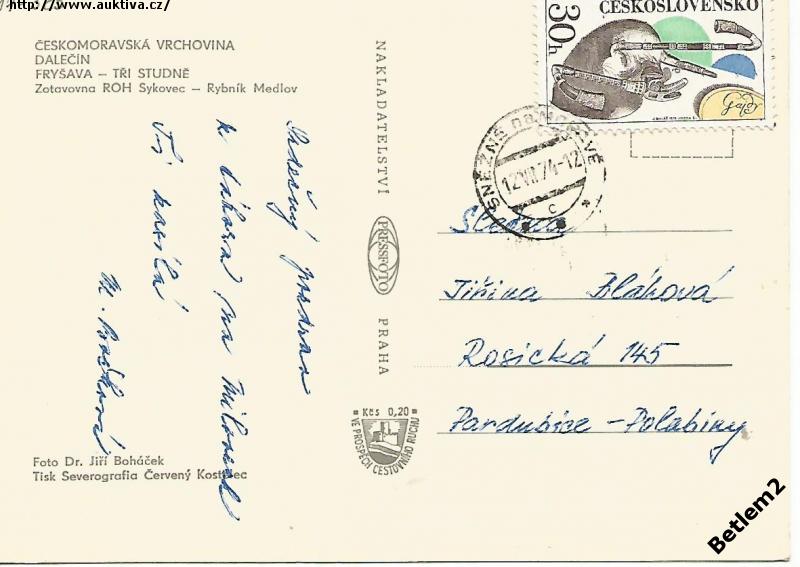 http://www.auktiva.cz/
ČESKOMORAVSKÁ VRCHOVINA
DALEČÍN
FRYŠAVA – TŘI STUDNĚ
Zotavovna ROH Sykovec – Rybník Medlov
Srdečný pozdrav
z tábora na Milovech
Tvá
M.
Foto Dr. Jiří Boháček
Tisk Severografia Červený Kostelec
NAKLADATELSTVÍ
PRESSFOTO
PRAHA
Kčs 0,20
VE PROSPĚCH CESTOVNÍHO RUCHU
ČESKOSLOVENSKO
30h
SNĚŽNÉ na MORAVĚ
12.VII.74-12
c
Slečna
Jiřina Bláhová
Rosická 145
Pardubice – Polabiny
Betlem2